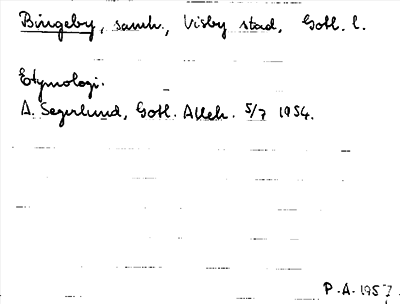 Bingeby, samh., Visby stad, Gotl. l.
Etymologi.
A. Segerlund, Gotl. Alleh. 5/7 1954.
P.A. 1957